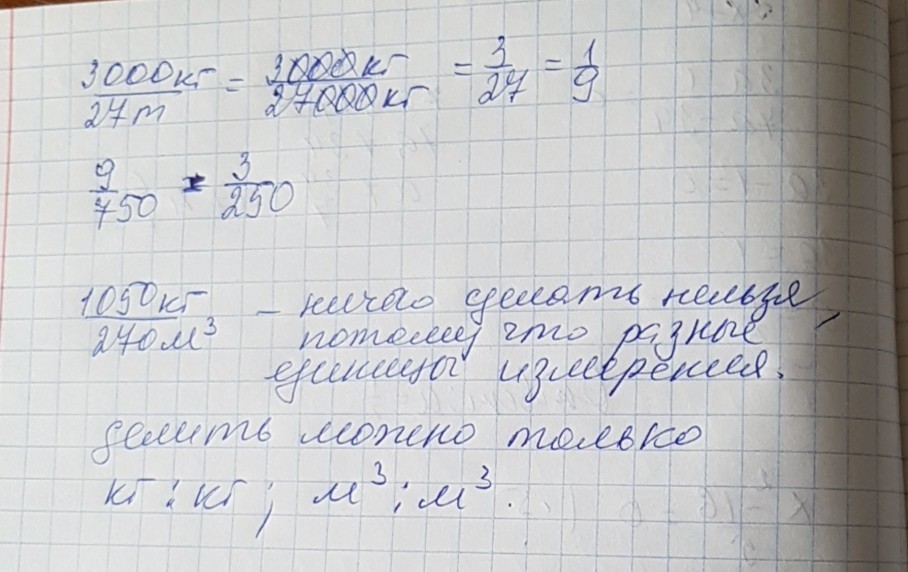 3000кг/27т = 3000кг/27000кг = 3/27 = 1/9
9/750 = 3/250
1050кг/270м³ – ничао сделать нельзя,
потому что разные
единицы измерения.
делить можно только
кг : кг ; м³ : м³.